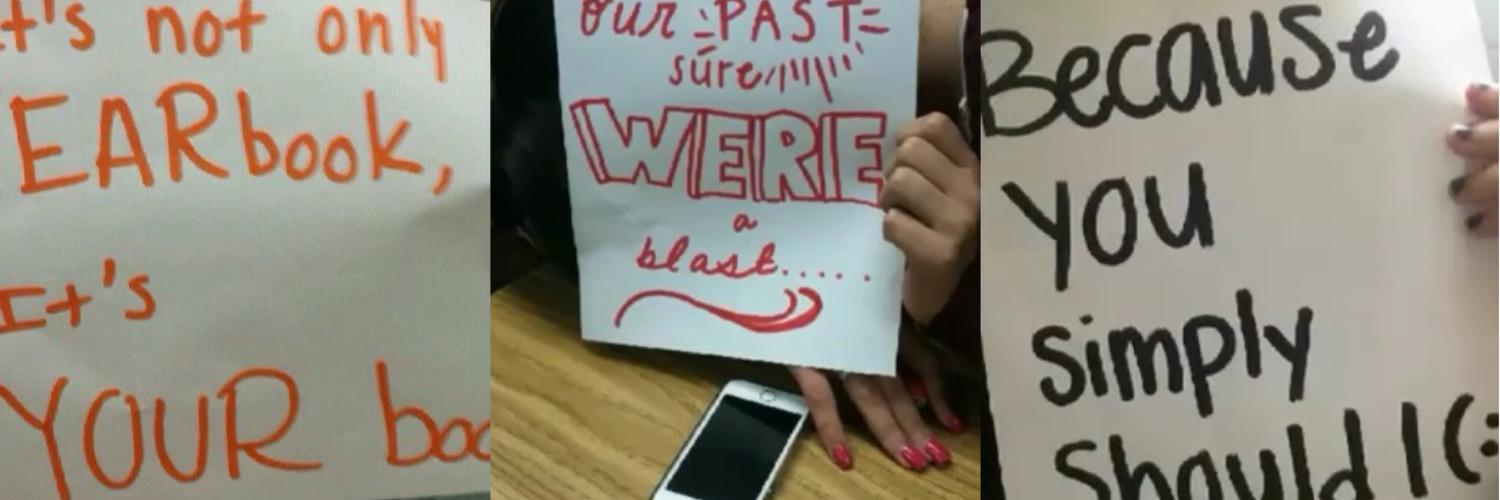 t's not only
EARbook,
It's
YOUR boo
our PAST
sure
WERE
a
blast.....
Because
you
simply
Should!(: